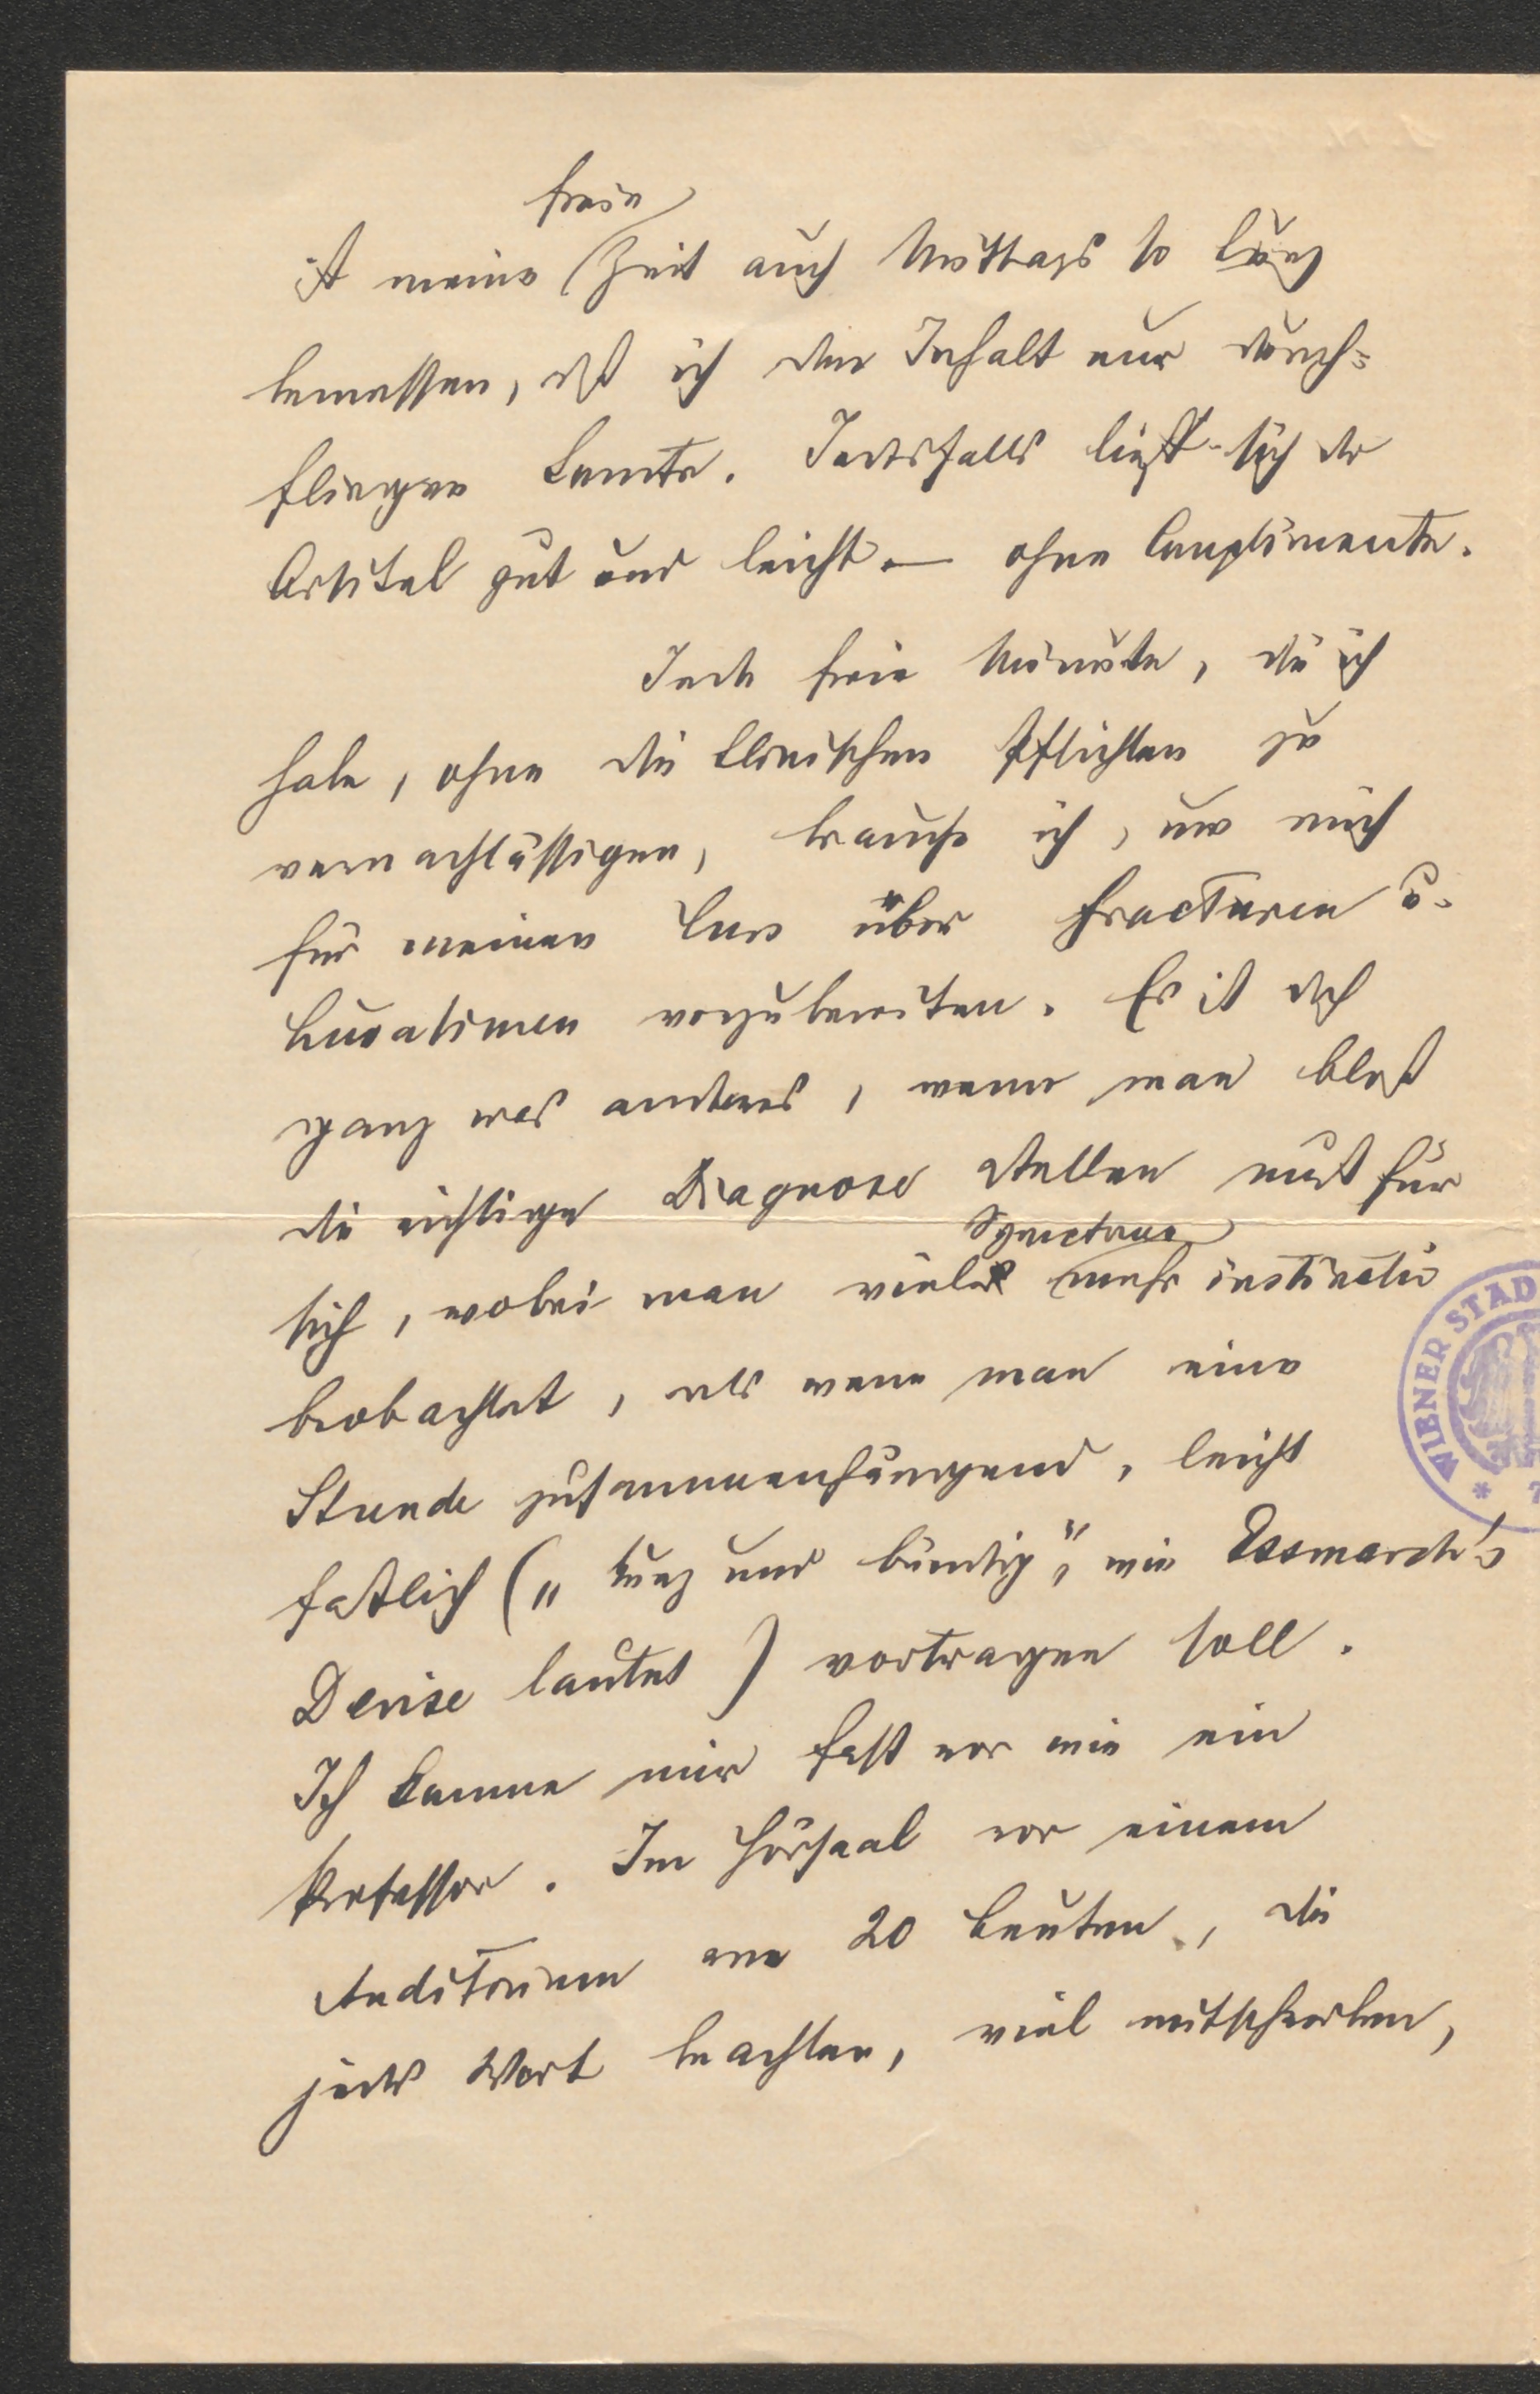 freie
ist meine Zeit auch Mittags so kurz
bemessen, daß ich den Inhalt nur durch=
fliegen konnte. Jedesfalls liest sich der
Artikel gut und leicht — ohne Complimente.
Jede freie Minute, die ich
habe, ohne die klinischen Pflichten zu
vernachlässigen, brauche ich, um mich
für meinen Curs über Fracturen u.
Luxationen vorzubereiten. Es ist doch
ganz was anderes, wenn man bloß
die richtige Diagnose stellen muß für
Symptome
sich, wobei man viele mehr instinctiv
beobachtet, als wenn man eine
Stunde zusammenhängend, leicht
faßlich („kurz und bündig“, wie Essmarch's
Devise lautet) vortragen soll.
Ich komme mir fast vor wie ein
Professor. Im Hörsaal vor einem
Auditorium von 20 Leuten, die
jedes Wort beachten, viel mitschreiben,
WIENER STAD
* 7